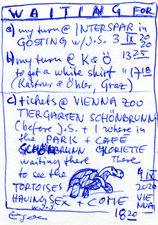 WAITING FOR
a) my turn @ INTERSPAR in
GÖSTING w/J.S. 3 II 20 20
b) my turn @ K & Ö 13 25
to get a white shirt " 17 18
(Kastner & Öhler, Graz)
c) tickets @ VIENNA ZOO
TIERGARTEN SCHÖNBRUNN
(before J.S. + I where in
the PARK + CAFÉ
GLORIETTE
waiting there There
to see the 4 IV
TORTOISES 2020
HAVING SEX + COME VIENNA
1820